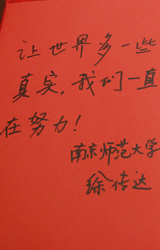 让世界多一些
真实，我们一直
在努力！
南京师范大学
徐传达